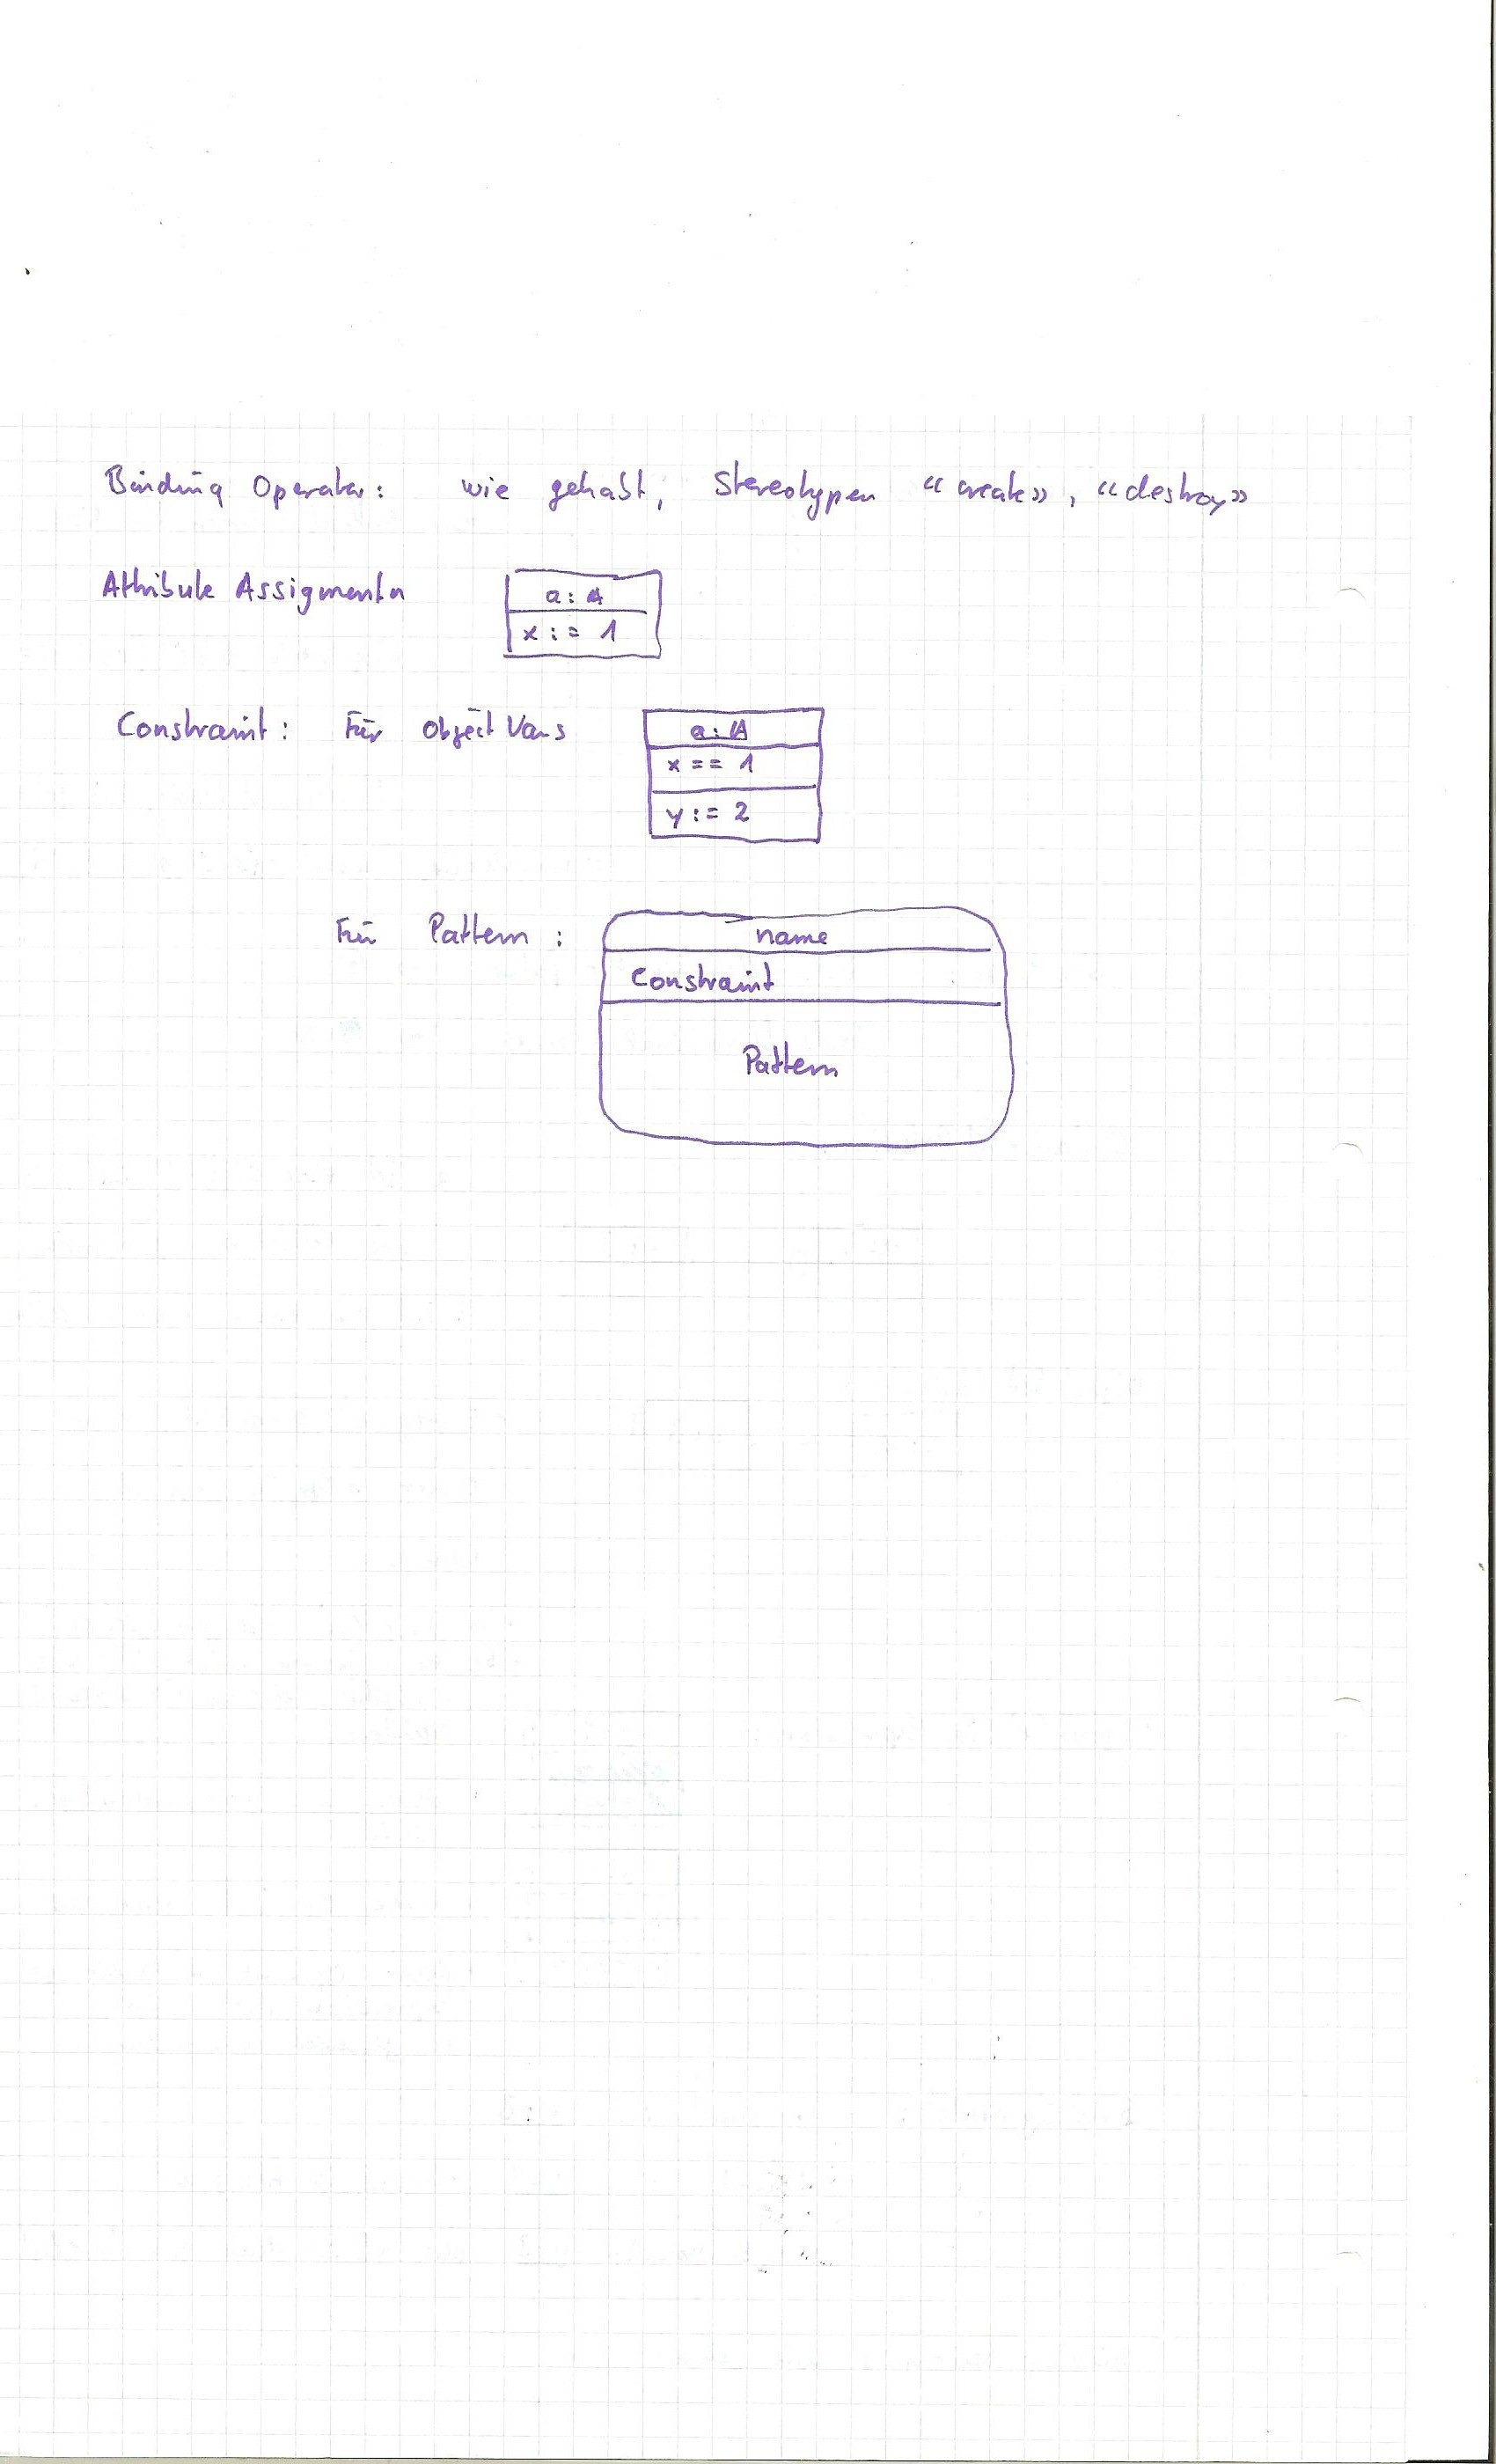 Binding Operator: wie gehabt, Stereotypen «create», «destroy»
Attribute Assigmentn
a: A
x := 1
Constraint: Für Object Vars
a: A
x == 1
y := 2
Für Pattern :
name
Constraint
Pattern